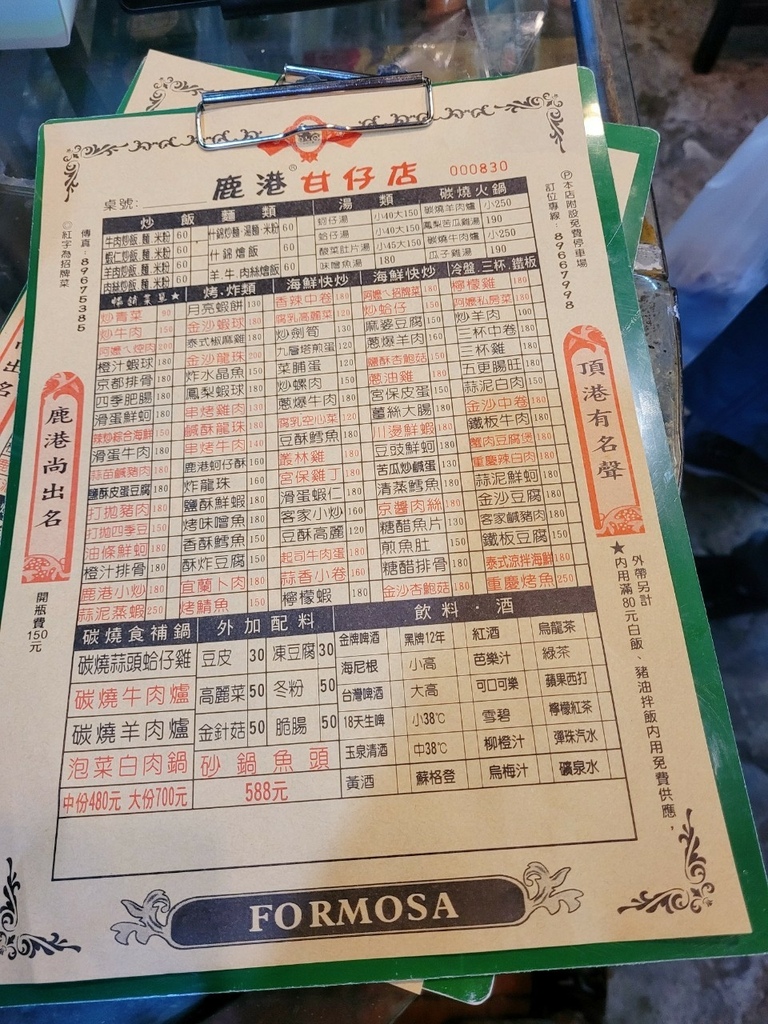 鹿港甘仔店
000830
桌號:
Ⓟ本店附設免費停車場
訂位專線:89667998
傳真:89675385
◎紅字為招牌菜
炒飯麵類
牛肉炒飯.麵.米粉 60
蝦仁炒飯.麵.米粉 60
羊肉炒飯.麵.米粉 60
肉絲炒飯.麵.米粉 60
什錦炒麵.湯麵.米粉 60
什錦燴飯 60
羊牛肉絲燴飯 60
湯類
蚵仔湯 小40大150
蛤仔湯 小40大150
酸菜肚片湯 小45大150
味噌魚湯 180
碳燒火鍋
碳燒羊肉爐 小250
鳳梨苦瓜雞湯 190
碳燒牛肉爐 小250
瓜子雞湯 190
暢銷菜單★
炒青菜
炒牛肉 150
橙汁蝦球 180
京都排骨 180
四季肥腸 180
滑蛋鮮蚵 180
辣炒綜合海鮮 150
滑蛋牛肉 150
蒜苗鹹豬肉 180
鹽酥皮蛋豆腐 180
打拋豬肉 180
打拋四季豆 150
油條鮮蚵 180
橙汁排骨 180
鹿港小炒 180
蒜泥蒸蝦 250
烤.炸類
月亮蝦餅 130
金沙蝦球 180
泰式椒麻雞 150
金沙龍珠 200
炸水晶魚 150
鳳梨蝦球 180
串烤雞肉 130
鹹酥龍珠 180
串烤牛肉 140
鹿港蚵仔酥 160
炸龍珠 160
鹽酥鮮蝦 180
烤味噌魚 180
香酥鱈魚 150
酥炸豆腐 150
宜蘭卜肉 180
烤鯖魚 150
海鮮快炒
香辣中卷 180
腐乳高麗菜 120
炒劍筍 130
九層塔煎蛋 120
菜脯蛋 120
炒螺肉 150
蔥爆牛肉 150
腐乳空心菜 120
豆酥鱈魚 180
叢林雞 180
宮保雞丁 180
滑蛋蝦仁 180
客家小炒 160
豆酥高麗 120
起司牛肉蛋 180
蒜香小卷 160
檸檬蝦 180
海鮮快炒
炒蛤仔 150
麻婆豆腐 150
蔥爆羊肉 150
鹽酥杏鮑菇 150
蔥油雞 180
宮保皮蛋 150
薑絲大腸 180
川燙鮮蝦 180
豆豉鮮蚵 180
苦瓜炒鹹蛋 130
清蒸鱈魚 180
京醬肉絲 180
糖醋魚片 130
煎魚肚 150
糖醋排骨 180
金沙杏鮑菇 180
冷盤.三杯.鐵板
檸檬雞 180
阿嬤私房菜 180
炒羊肉 100
三杯中卷 180
三杯雞 180
五更腸旺 180
蒜泥白肉 150
金沙中卷 180
鐵板牛肉 180
蟹肉豆腐煲 180
重慶辣白肉 180
蒜泥鮮蚵 180
金沙豆腐 180
客家鹹豬肉 180
鐵板豆腐 150
泰式涼拌海鮮 180
重慶烤魚 250
碳燒食補鍋
碳燒蒜頭蛤仔雞
碳燒牛肉爐
碳燒羊肉爐
泡菜白肉鍋
中份480元 大份700元
外加配料
豆皮 30 凍豆腐 30
高麗菜 50 冬粉 50
金針菇 50 脆腸 50
砂鍋魚頭
588元
飲料.酒
金牌啤酒 黑牌12年 紅酒 烏龍茶
海尼根 小高 芭樂汁 綠茶
台灣啤酒 大高 可口可樂 蘋果西打
18天生啤 小38℃ 雪碧 檸檬紅茶
玉泉清酒 中38℃ 柳橙汁 彈珠汽水
黃酒 蘇格登 烏梅汁 礦泉水
鹿港尚出名
開瓶費150元
頂港有名聲
★外帶另計
內用滿80元白飯、豬油拌飯內用免費供應,
FORMOSA